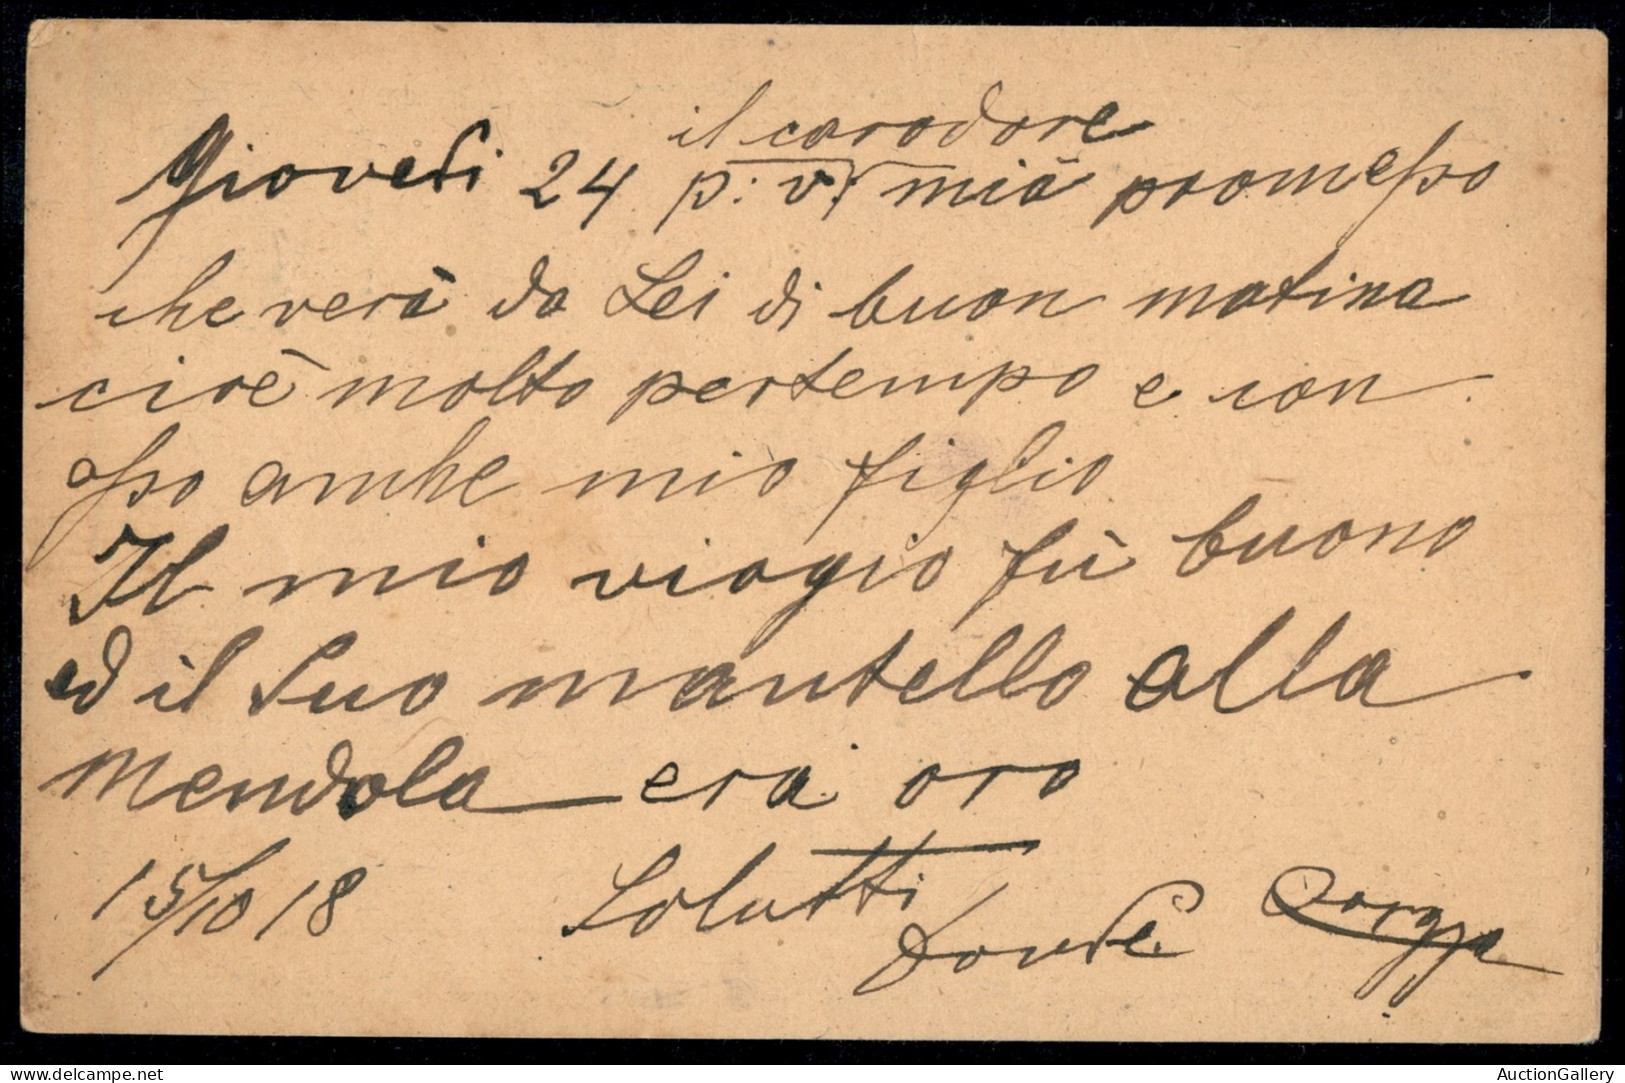 il carodore
Giovedi 24 p. v. mià promesso
che verà da Lei di buon matina
cioè molto pertempo e con
esso anche mio figlio
Il mio viagio fù buono
ed il Suo mantello alla
mendola era oro
15/10 18 Salutti
AuctionGallery